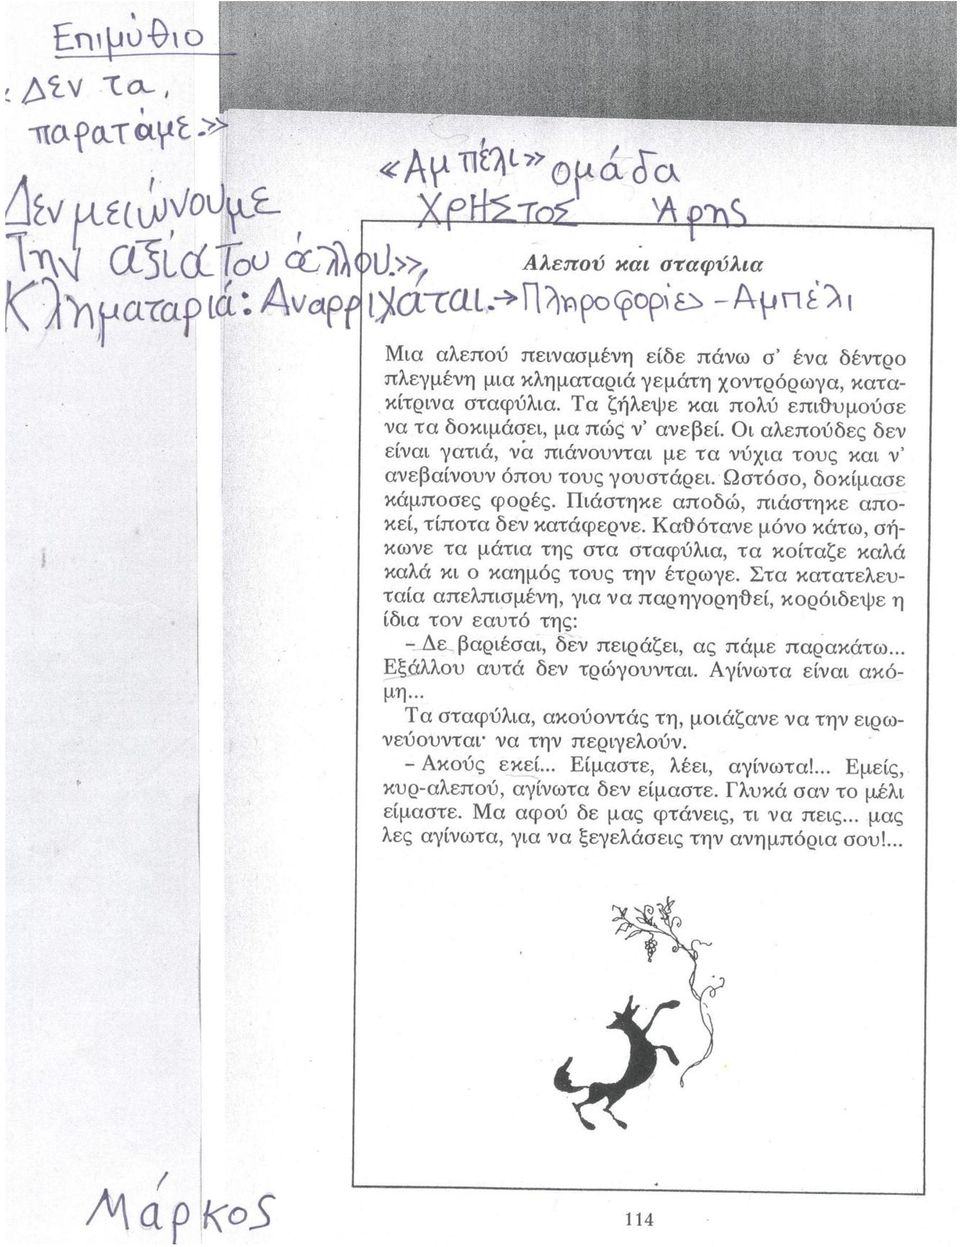 Επιμύθιο
«Δεν τα
παρατάμε.»
«Αμπέλι» ομάδα
Δεν μειώνουμε
ΧΡΗΣΤΟΣ Άρης
Την αξία Του άλλου.»,
Αλεπού και σταφύλια
Κληματαριά: Αναρριχάται.→Πληροφορίες - Αμπέλι
Μια αλεπού πεινασμένη είδε πάνω σ' ένα δέντρο
πλεγμένη μια κληματαριά γεμάτη χοντρόρωγα, κατα-
κίτρινα σταφύλια. Τα ζήλεψε και πολύ επιθυμούσε
να τα δοκιμάσει, μα πώς ν' ανεβεί. Οι αλεπούδες δεν
είναι γατιά, να πιάνουνται με τα νύχια τους και ν'
ανεβαίνουν όπου τους γουστάρει. Ωστόσο, δοκίμασε
κάμποσες φορές. Πιάστηκε αποδώ, πιάστηκε απο-
κεί, τίποτα δεν κατάφερνε. Καθότανε μόνο κάτω, σή-
κωνε τα μάτια της στα σταφύλια, τα κοίταζε καλά
καλά κι ο καημός τους την έτρωγε. Στα κατατελευ-
ταία απελπισμένη, για να παρηγορηθεί, κορόιδεψε η
ίδια τον εαυτό της:
– Δε βαριέσαι, δεν πειράζει, ας πάμε παρακάτω...
Εξάλλου αυτά δεν τρώγουνται. Αγίνωτα είναι ακό-
μη...
Τα σταφύλια, ακούοντάς τη, μοιάζανε να την ειρω-
νεύουνται· να την περιγελούν.
– Ακούς εκεί... Είμαστε, λέει, αγίνωτα!... Εμείς,
κυρ-αλεπού, αγίνωτα δεν είμαστε. Γλυκά σαν το μέλι
είμαστε. Μα αφού δε μας φτάνεις, τι να πεις... μας
λες αγίνωτα, για να ξεγελάσεις την ανημπόρια σου!...
Μάρκος
114